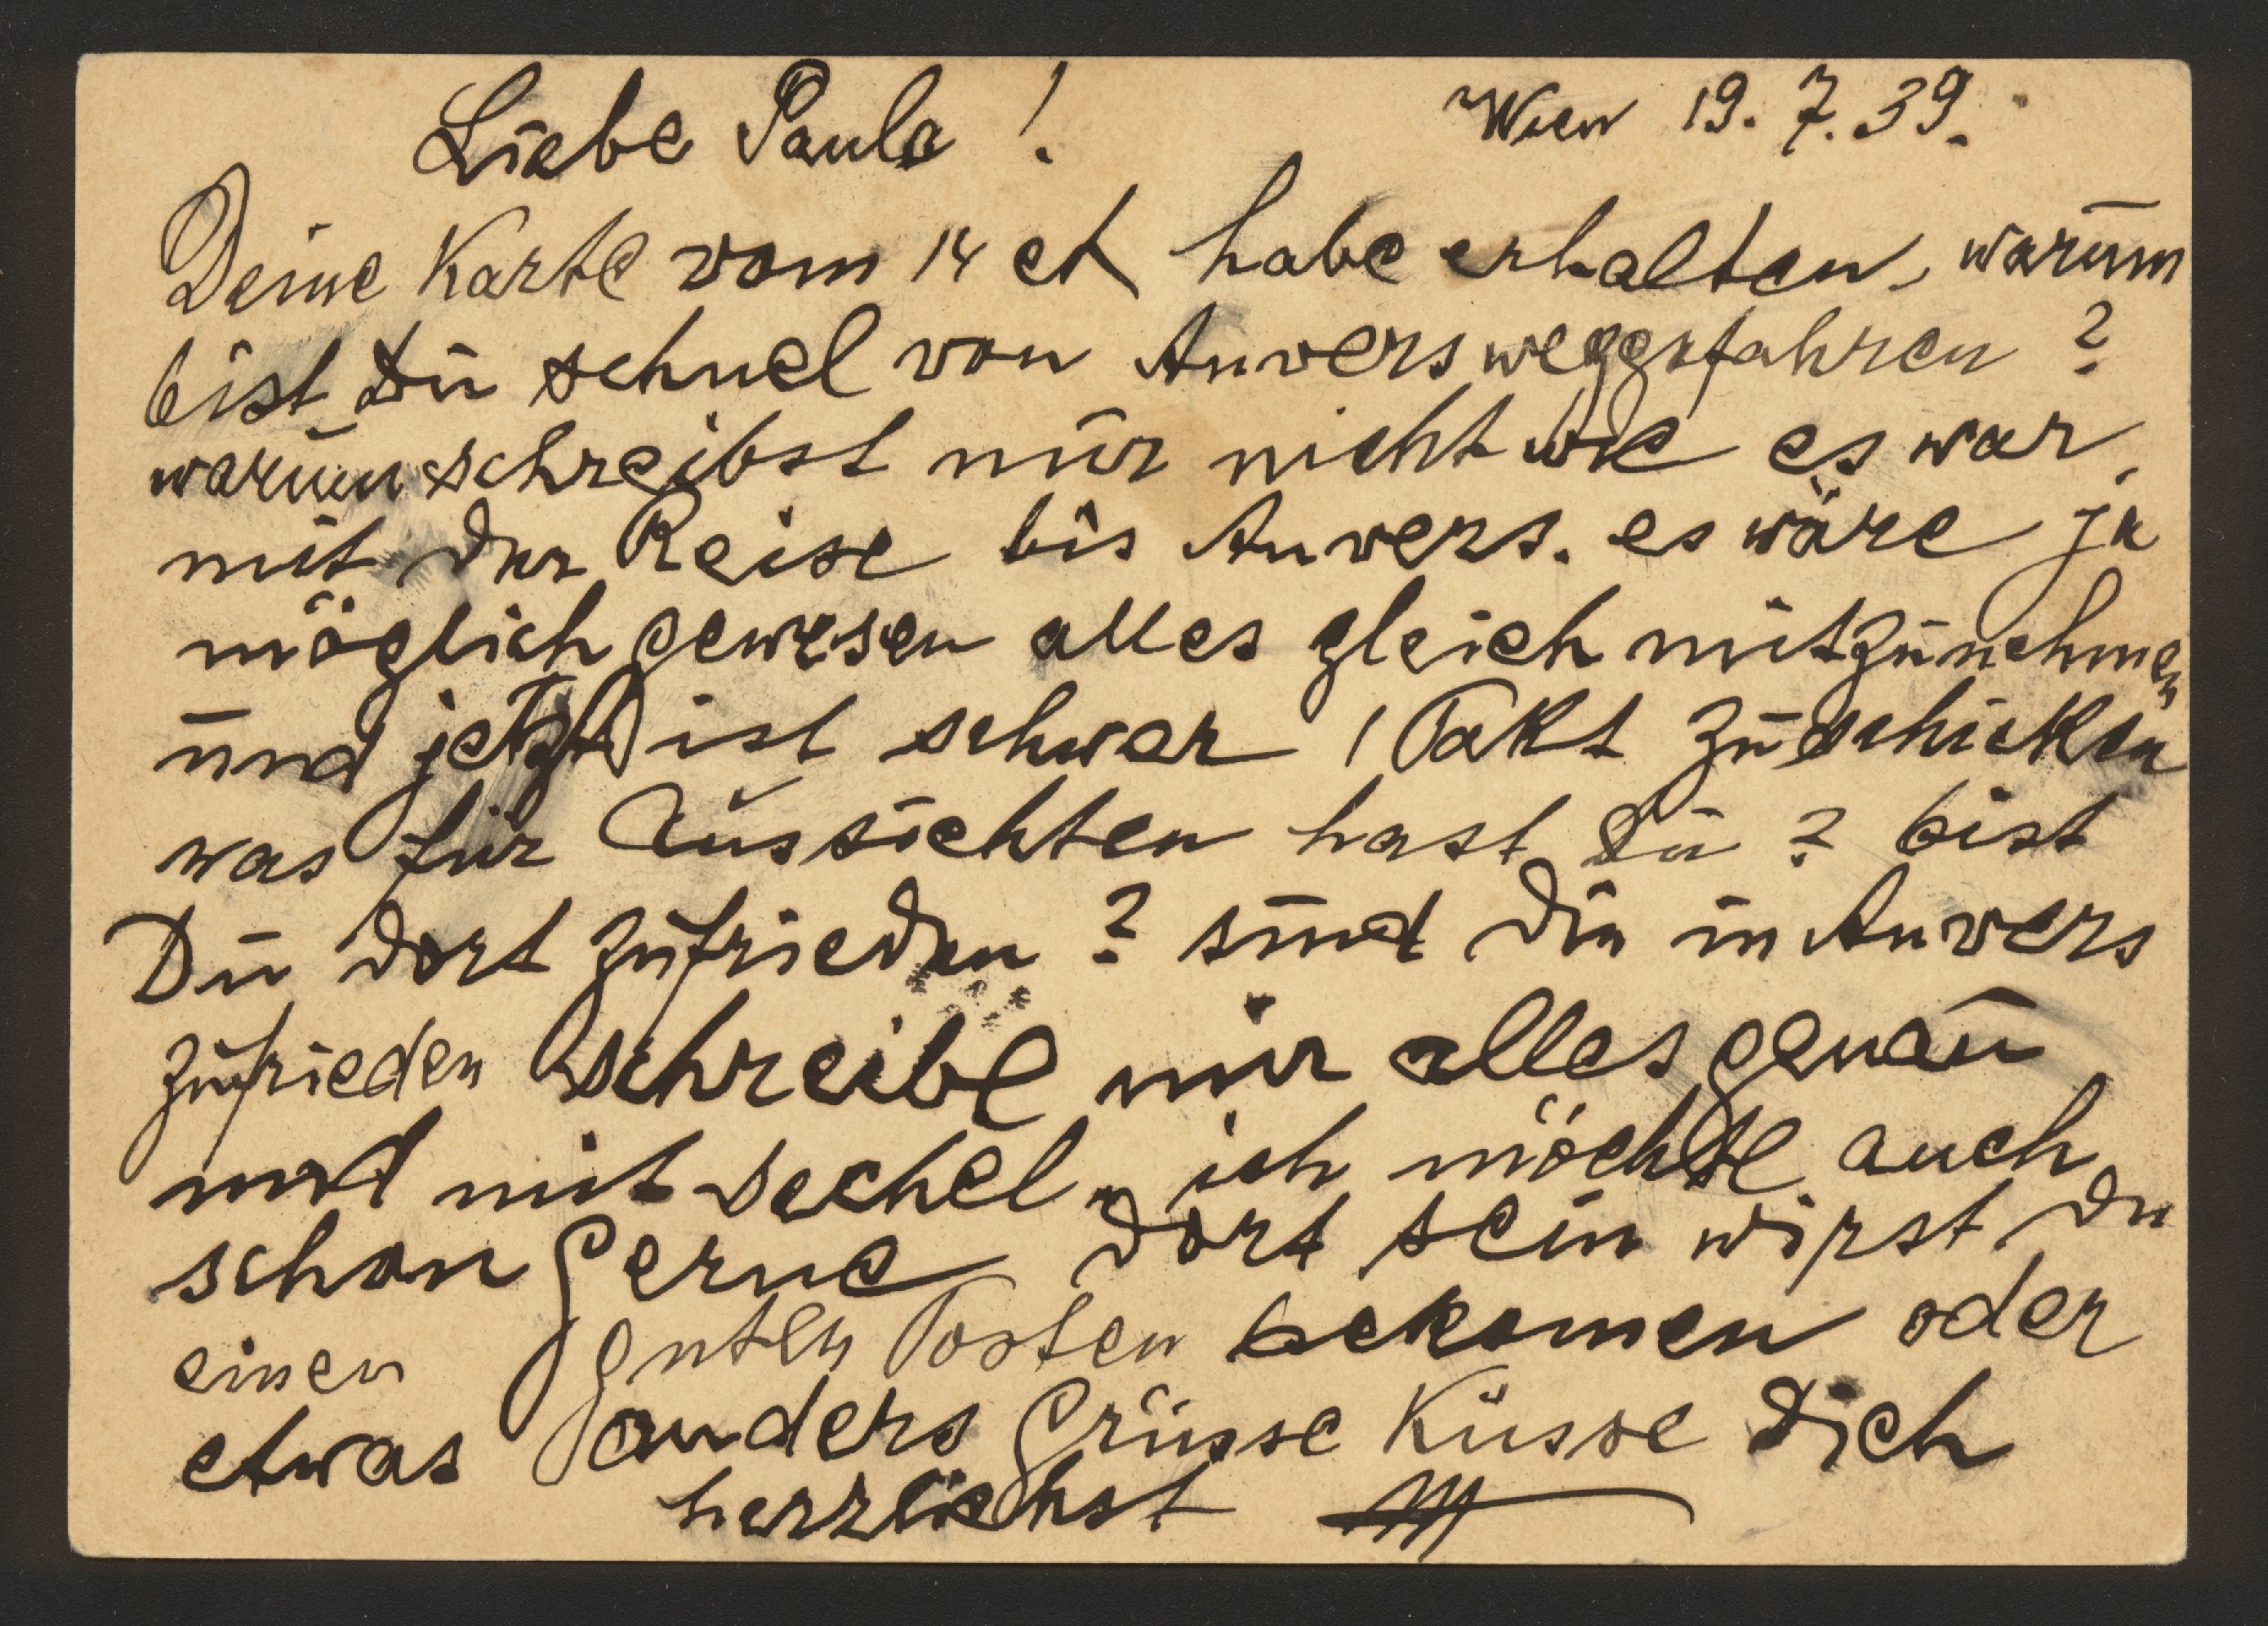 Liebe Paula! Wien 19.7.39.
Deine Karte vom 14 ct habe erhalten, warum
bist Du schnel von Anvers weggefahren?
warum schreibst mir nicht wie es war,
mit der Reise bis Anvers. es wäre ja
möglich gewesen alles gleich mitzunehmen
und jetzt ist schwer 1 Pakt zu schicken
was für Aussichten hast Du? bist
Du dort zufrieden? sind die in Anvers
zufrieden schreibe mir alles genau
und mit Sechel, ich möchte auch
schon gerne dort sein wirst Du
einen guten Posten bekomen oder
etwas anders Grüsse Küsse Dich
herzlichst